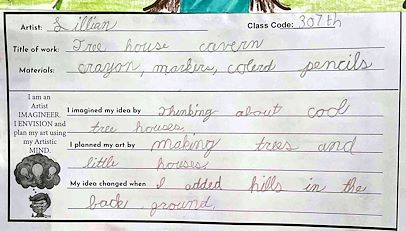 Artist: Lillian Class Code: 307th
Title of work: Tree house cavern
Materials: crayon, markers, colerd pencils
I am an
Artist
IMAGINEER.
I ENVISION and
plan my art using
my Artistic
MIND.
I imagined my idea by Thinking about cool
tree houses,
I planned my art by making tres and
little houses
My idea changed when I added hills in the
back ground,